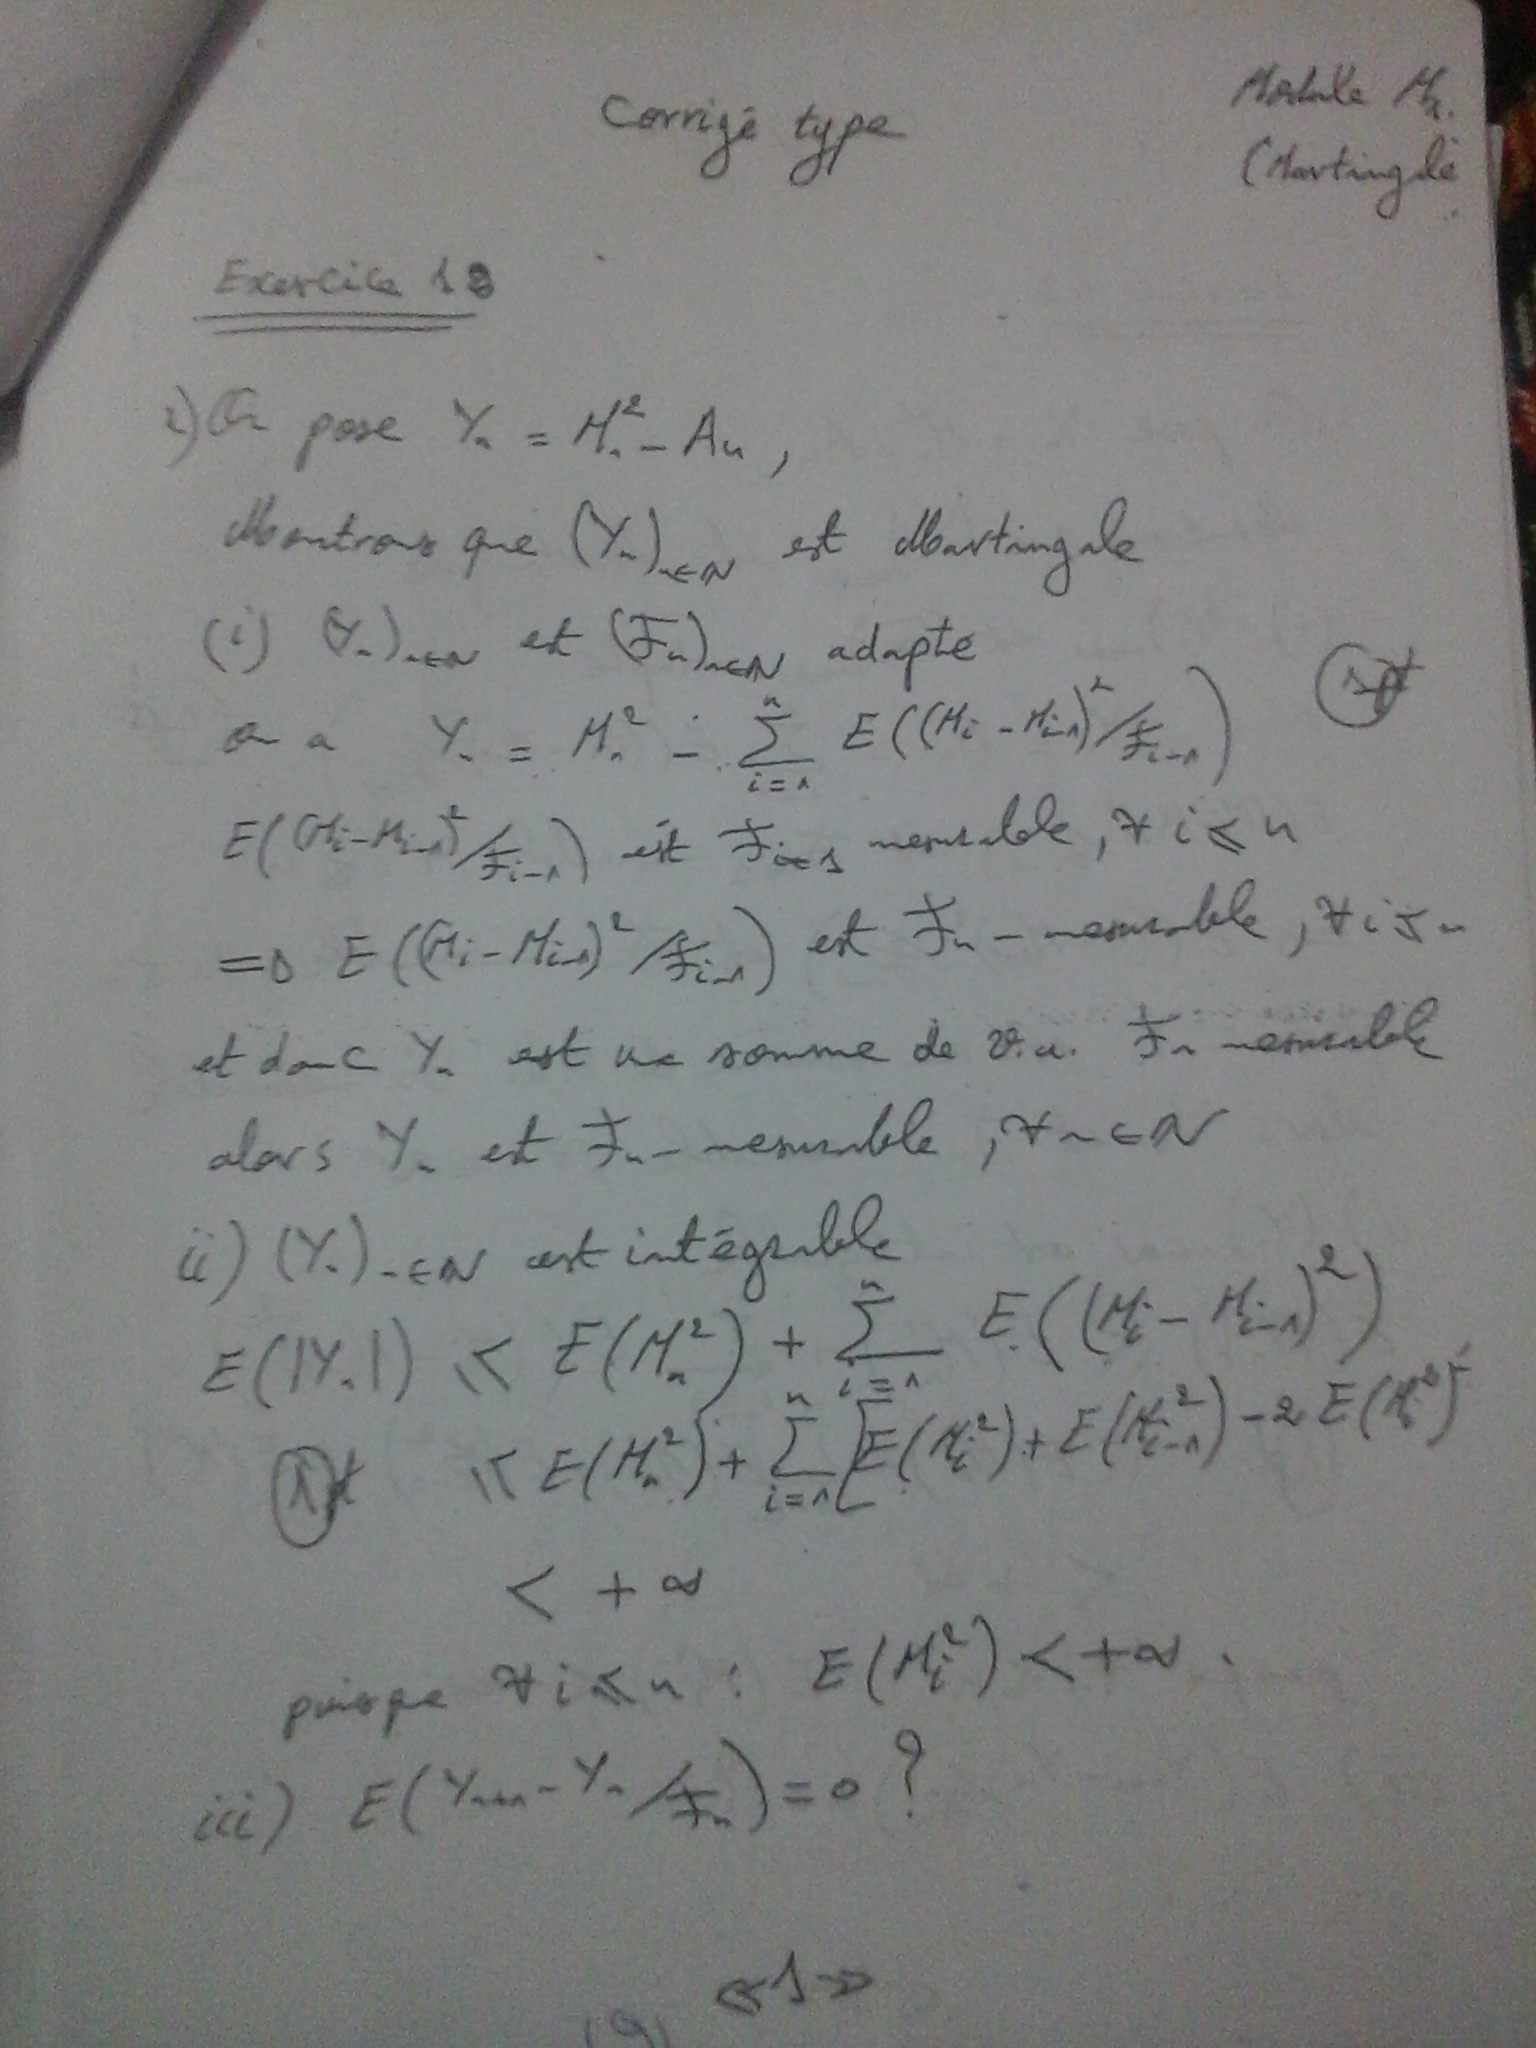 Corrigé type
Module M2.
(Martingale
Exercice 18
1) On pose Yn = Mn² - An ,
Montrons que (Yn)n∈N est Martingale
(i) (Yn)n∈N est (Fn)n∈N adapté
1pt
on a Yn = Mn² - ∑_{i=1}^{n} E((Mi - Mi-1)²/Fi-1)
E((Mi-Mi-1)²/Fi-1) est Fi-1 mesurable, ∀ i ≤ n
=> E((Mi-Mi-1)²/Fi-1) est Fn - mesurable, ∀ i ≤ n
et donc Yn est une somme de v.a. Fn mesurable
alors Yn est Fn - mesurable, ∀ n ∈ N
ii) (Yn)n∈N est intégrable
E(|Yn|) ≤ E(Mn²) + ∑_{i=1}^{n} E((Mi - Mi-1)²)
1pt ≤ E(Mn²) + ∑_{i=1}^{n} [E(Mi²) + E(Mi-1²) - 2 E(
< + ∞
puisque ∀ i ≤ n : E(Mi²) < +∞ .
iii) E(Yn+1 - Yn/Fn) = 0 ?
«1»